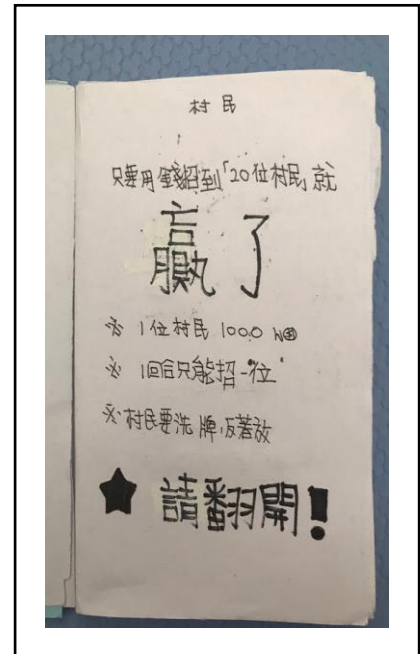 村民
只要用錢招到「20位村民」就
贏了
※ 1位村民 1000
※ 1回合只能招"一位"
※村民要洗牌,反著放
★ 請翻開!